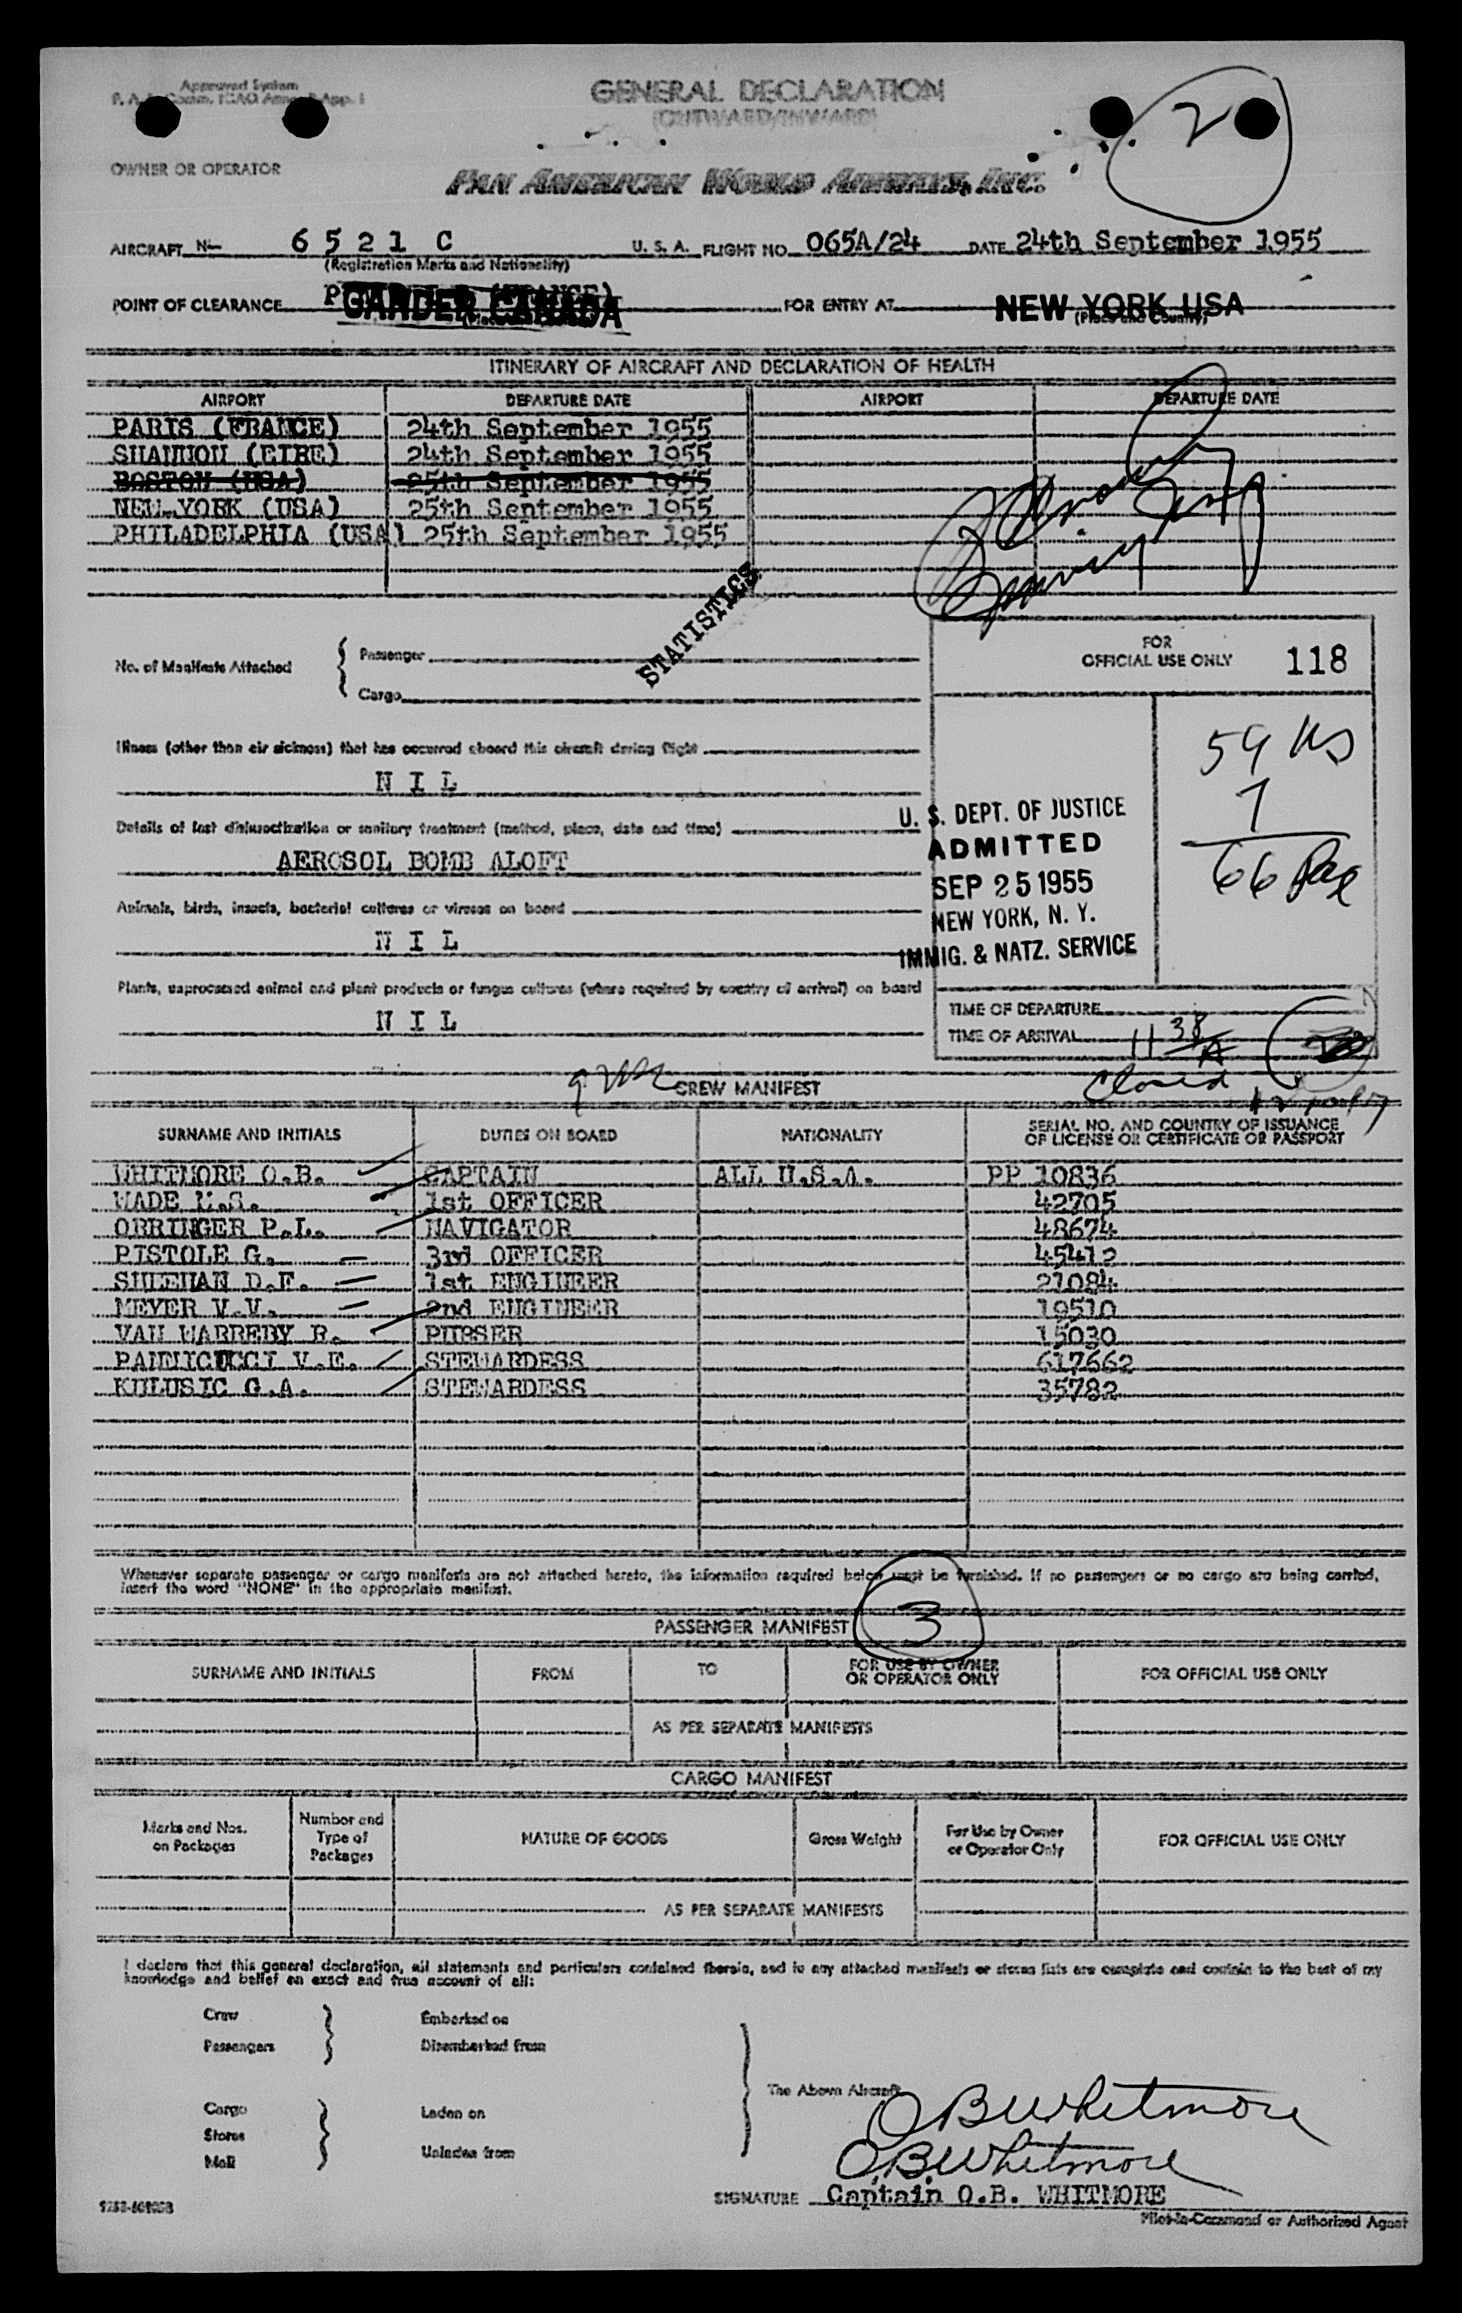 Approved System
GENERAL DECLARATION
(OUTWARD/INWARD)
2
OWNER OR OPERATOR
PAN AMERICAN WORLD AIRWAYS, INC.
AIRCRAFT N- 6 5 2 1 C U. S. A. FLIGHT NO. 065A/24 DATE 24th September 1955
(Registration Marks and Nationality)
POINT OF CLEARANCE GANDER CANADA FOR ENTRY AT NEW YORK USA
(Place and Country)
ITINERARY OF AIRCRAFT AND DECLARATION OF HEALTH
AIRPORT DEPARTURE DATE AIRPORT DEPARTURE DATE
PARIS (FRANCE) 24th September 1955
SHANNON (EIRE) 24th September 1955
BOSTON (USA) 25th September 1955
NEW YORK (USA) 25th September 1955
PHILADELPHIA (USA) 25th September 1955
STATISTICS
No. of Manifests Attached { Passenger
Cargo
FOR
OFFICIAL USE ONLY 118
Illness (other than air sickness) that has occurred aboard this aircraft during flight
N I L
Details of last disinsectization or sanitary treatment (method, place, date and time)
AEROSOL BOMB ALOFT
Animals, birds, insects, bacterial cultures or viruses on board
N I L
Plants, unprocessed animal and plant products or fungus cultures (where required by country of arrival) on board
N I L
U. S. DEPT. OF JUSTICE
ADMITTED
SEP 25 1955
NEW YORK, N. Y.
IMMIG. & NATZ. SERVICE
59
7
66 Pax
TIME OF DEPARTURE
TIME OF ARRIVAL 11 38 A
Closed
9 CREW MANIFEST
SURNAME AND INITIALS DUTIES ON BOARD NATIONALITY SERIAL NO. AND COUNTRY OF ISSUANCE
OF LICENSE OR CERTIFICATE OR PASSPORT
WHITMORE O.B. CAPTAIN ALL U.S.A. PP 10836
WADE M.S. 1st OFFICER 42705
OBRINGER P.L. NAVIGATOR 48674
PISTOLE G. 3rd OFFICER 45412
SHEEHAN D.F. 1st ENGINEER 21084
MEYER V.V. 2nd ENGINEER 19510
VAN WARREBY R. PURSER 15030
PANNICUCCI V.E. STEWARDESS 617662
KULUSIC G.A. STEWARDESS 35782
Whenever separate passenger or cargo manifests are not attached hereto, the information required below must be furnished. If no passengers or no cargo are being carried,
insert the word "NONE" in the appropriate manifest.
PASSENGER MANIFEST 3
SURNAME AND INITIALS FROM TO FOR USE BY OWNER
OR OPERATOR ONLY FOR OFFICIAL USE ONLY
AS PER SEPARATE MANIFESTS
CARGO MANIFEST
Marks and Nos.
on Packages Number and
Type of
Packages NATURE OF GOODS Gross Weight For Use by Owner
or Operator Only FOR OFFICIAL USE ONLY
AS PER SEPARATE MANIFESTS
I declare that this general declaration, all statements and particulars contained therein, and in any attached manifests or stores lists are complete and contain to the best of my
knowledge and belief an exact and true account of all:
Crew Embarked on
Passengers Disembarked from
The Above Aircraft
Cargo Laden on
Stores
Mail Unladen from
OBWhitmore
O.B.Whitmore
SIGNATURE Captain O.B. WHITMORE
Pilot-in-Command or Authorized Agent